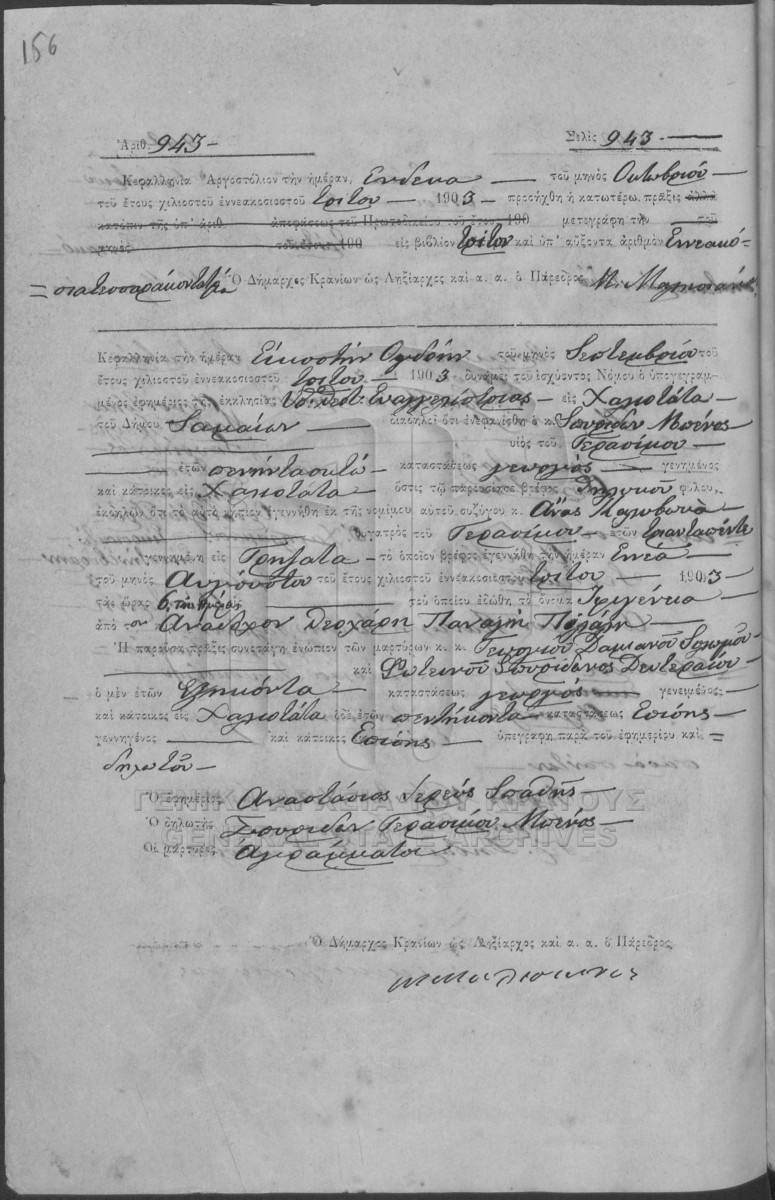 156
Ἀριθ. 943 — Σελὶς 943 —
Κεφαλληνία Ἀργοστόλιον τὴν ἡμέραν, Ενδεκα — τοῦ μηνὸς Οκτωβρίου —
τοῦ ἔτους χιλιοστοῦ ἐννεακοσιοστοῦ τρίτου — 1903 — προσήχθη ἡ κατωτέρω πρᾶξις ἀλλὰ
κατόπιν τῆς ὑπ' ἀριθ. ἀποφάσεως τοῦ Πρωτοδικείου τοῦ ἔτους 190 μετεγράφη τὴν — τοῦ
μηνὸς τοῦ ἔτους 190 εἰς βιβλίον τρίτον καὶ ὑπ' αὔξοντα ἀριθμὸν Εννεακό=
=σιατεσσαράκοντατρία Ὁ Δήμαρχος Κρανίων ὡς Ληξίαρχος καὶ α. α. ὁ Πάρεδρος
Κεφαλληνία τὴν ἡμέραν Εικοστήν Ογδόην τοῦ μηνὸς Σεπτεμβρίου τοῦ
ἔτους χιλιοστοῦ ἐννεακοσιοστοῦ τρίτου — 1903 δυνάμει τοῦ ἰσχύοντος Νόμου ὁ ὑπογεγραμ-
μένος ἐφημέριος τῆς ἐκκλησίας Ευαγγελίστριας — εἰς Χαλιοτάτα
τοῦ Δήμου Σαμαίων — διαδηλοῖ ὅτι ἐνεφανίσθη ὁ κ. Σπυρίδων Μπένος
— υἱὸς τοῦ Γερασίμου —
— ἐτῶν πενήντα οκτώ — καταστάσεως γεωργός — γενημένος
καὶ κάτοικος εἰς Χαλιοτάτα ὅστις τῷ παρουσίασε βρέφος θηλυκού φύλου,
ἐκδηλῶν ὅτι τὸ αὐτὸ νήπιον ἐγεννήθη ἐκ τῆς νομίμου αὐτοῦ συζύγου κ. Άνας
— θυγατρὸς τοῦ Γερασίμου — ἐτῶν τριανταπέντε
γενημένη εἰς — τὸ ὁποῖον βρέφος ἐγεννήθη τὴν ἡμέραν Εννέα —
τοῦ μηνὸς Αυγούστου τοῦ ἔτους χιλιοστοῦ ἐννεακοσιοστοῦ τρίτου — 1903 —
τὰς ὥρας 6 της ημέρας — τοῦ ὁποίου ἐδόθη τὸ ὄνομα Ιφιγένεια —
ἀπὸ τον Ανάδοχον Παναγή
— Ἡ παροῦσα πρᾶξις συνετάχθη ἐνώπιον τῶν μαρτύρων κ. κ. Γεωργίου Δαμιανού Σολωμού
— καὶ Φωτεινού Σπυρίδωνος Δευτεραίου —
ὁ μὲν ἐτῶν Εξήκοντα — καταστάσεως γεωργός — γενειμένος
καὶ κάτοικος εἰς Χαλιοτάτα ὁ δὲ ἐτῶν πεντήκοντα καταστάσεως Επίσης —
γεννηγένος — καὶ κάτοικος Επίσης — ὑπεγράφη παρὰ τοῦ ἐφημερίου καὶ =
δηλωτού —
Ὁ ἐφημέριος Αναστάσιος Ιερεύς Σπαθής —
Ὁ δηλωτὴς Σπυρίδων Γερασίμου Μπένος —
Οἱ μάρτυρες Αγράμματοι
ΓΕΝΙΚΑ ΑΡΧΕΙΑ ΤΟΥ ΚΡΑΤΟΥΣ
GENERAL STATE ARCHIVES
Ὁ Δήμαρχος Κρανίων ὡς Ληξίαρχος καὶ α. α. ὁ Πάρεδρος